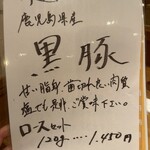 鹿児島県産
黒豚
甘い脂身、歯切れ良い肉質
塩でも是非ご賞味下さい。
ロースセット
120g‥‥1,450円